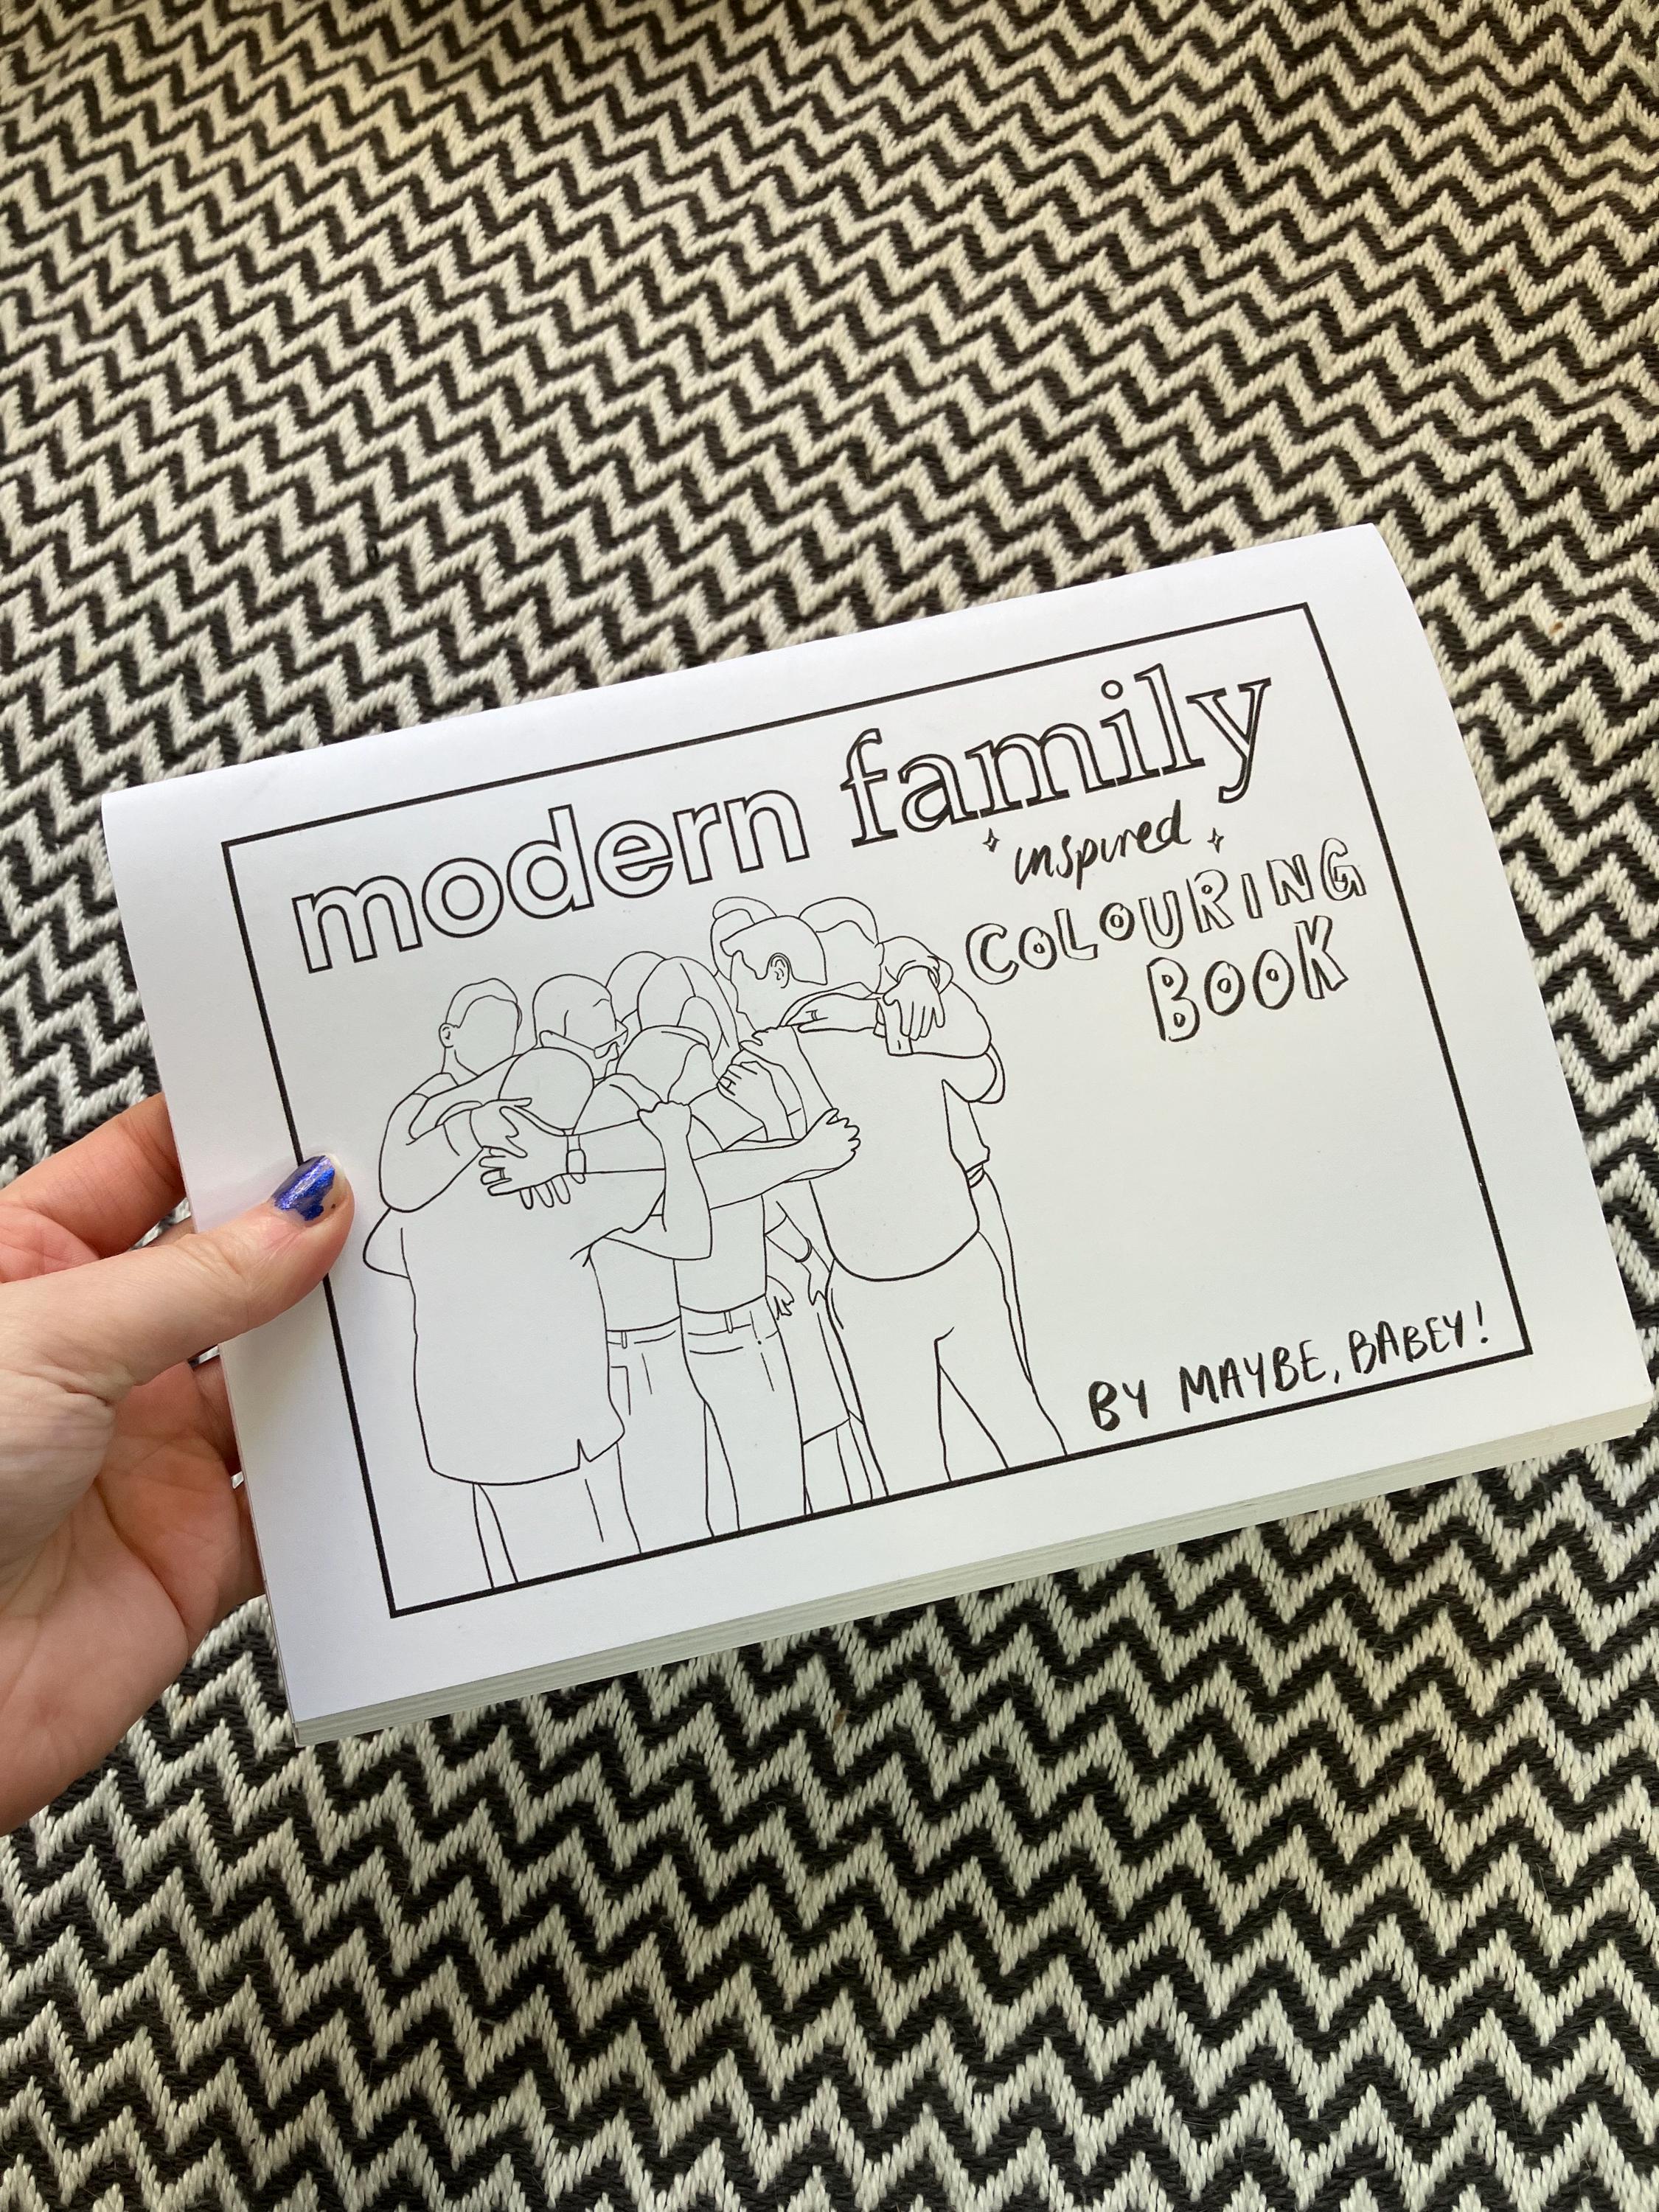 modern family
inspired
COLOURING
BOOK
BY MAYBE, BABEY!